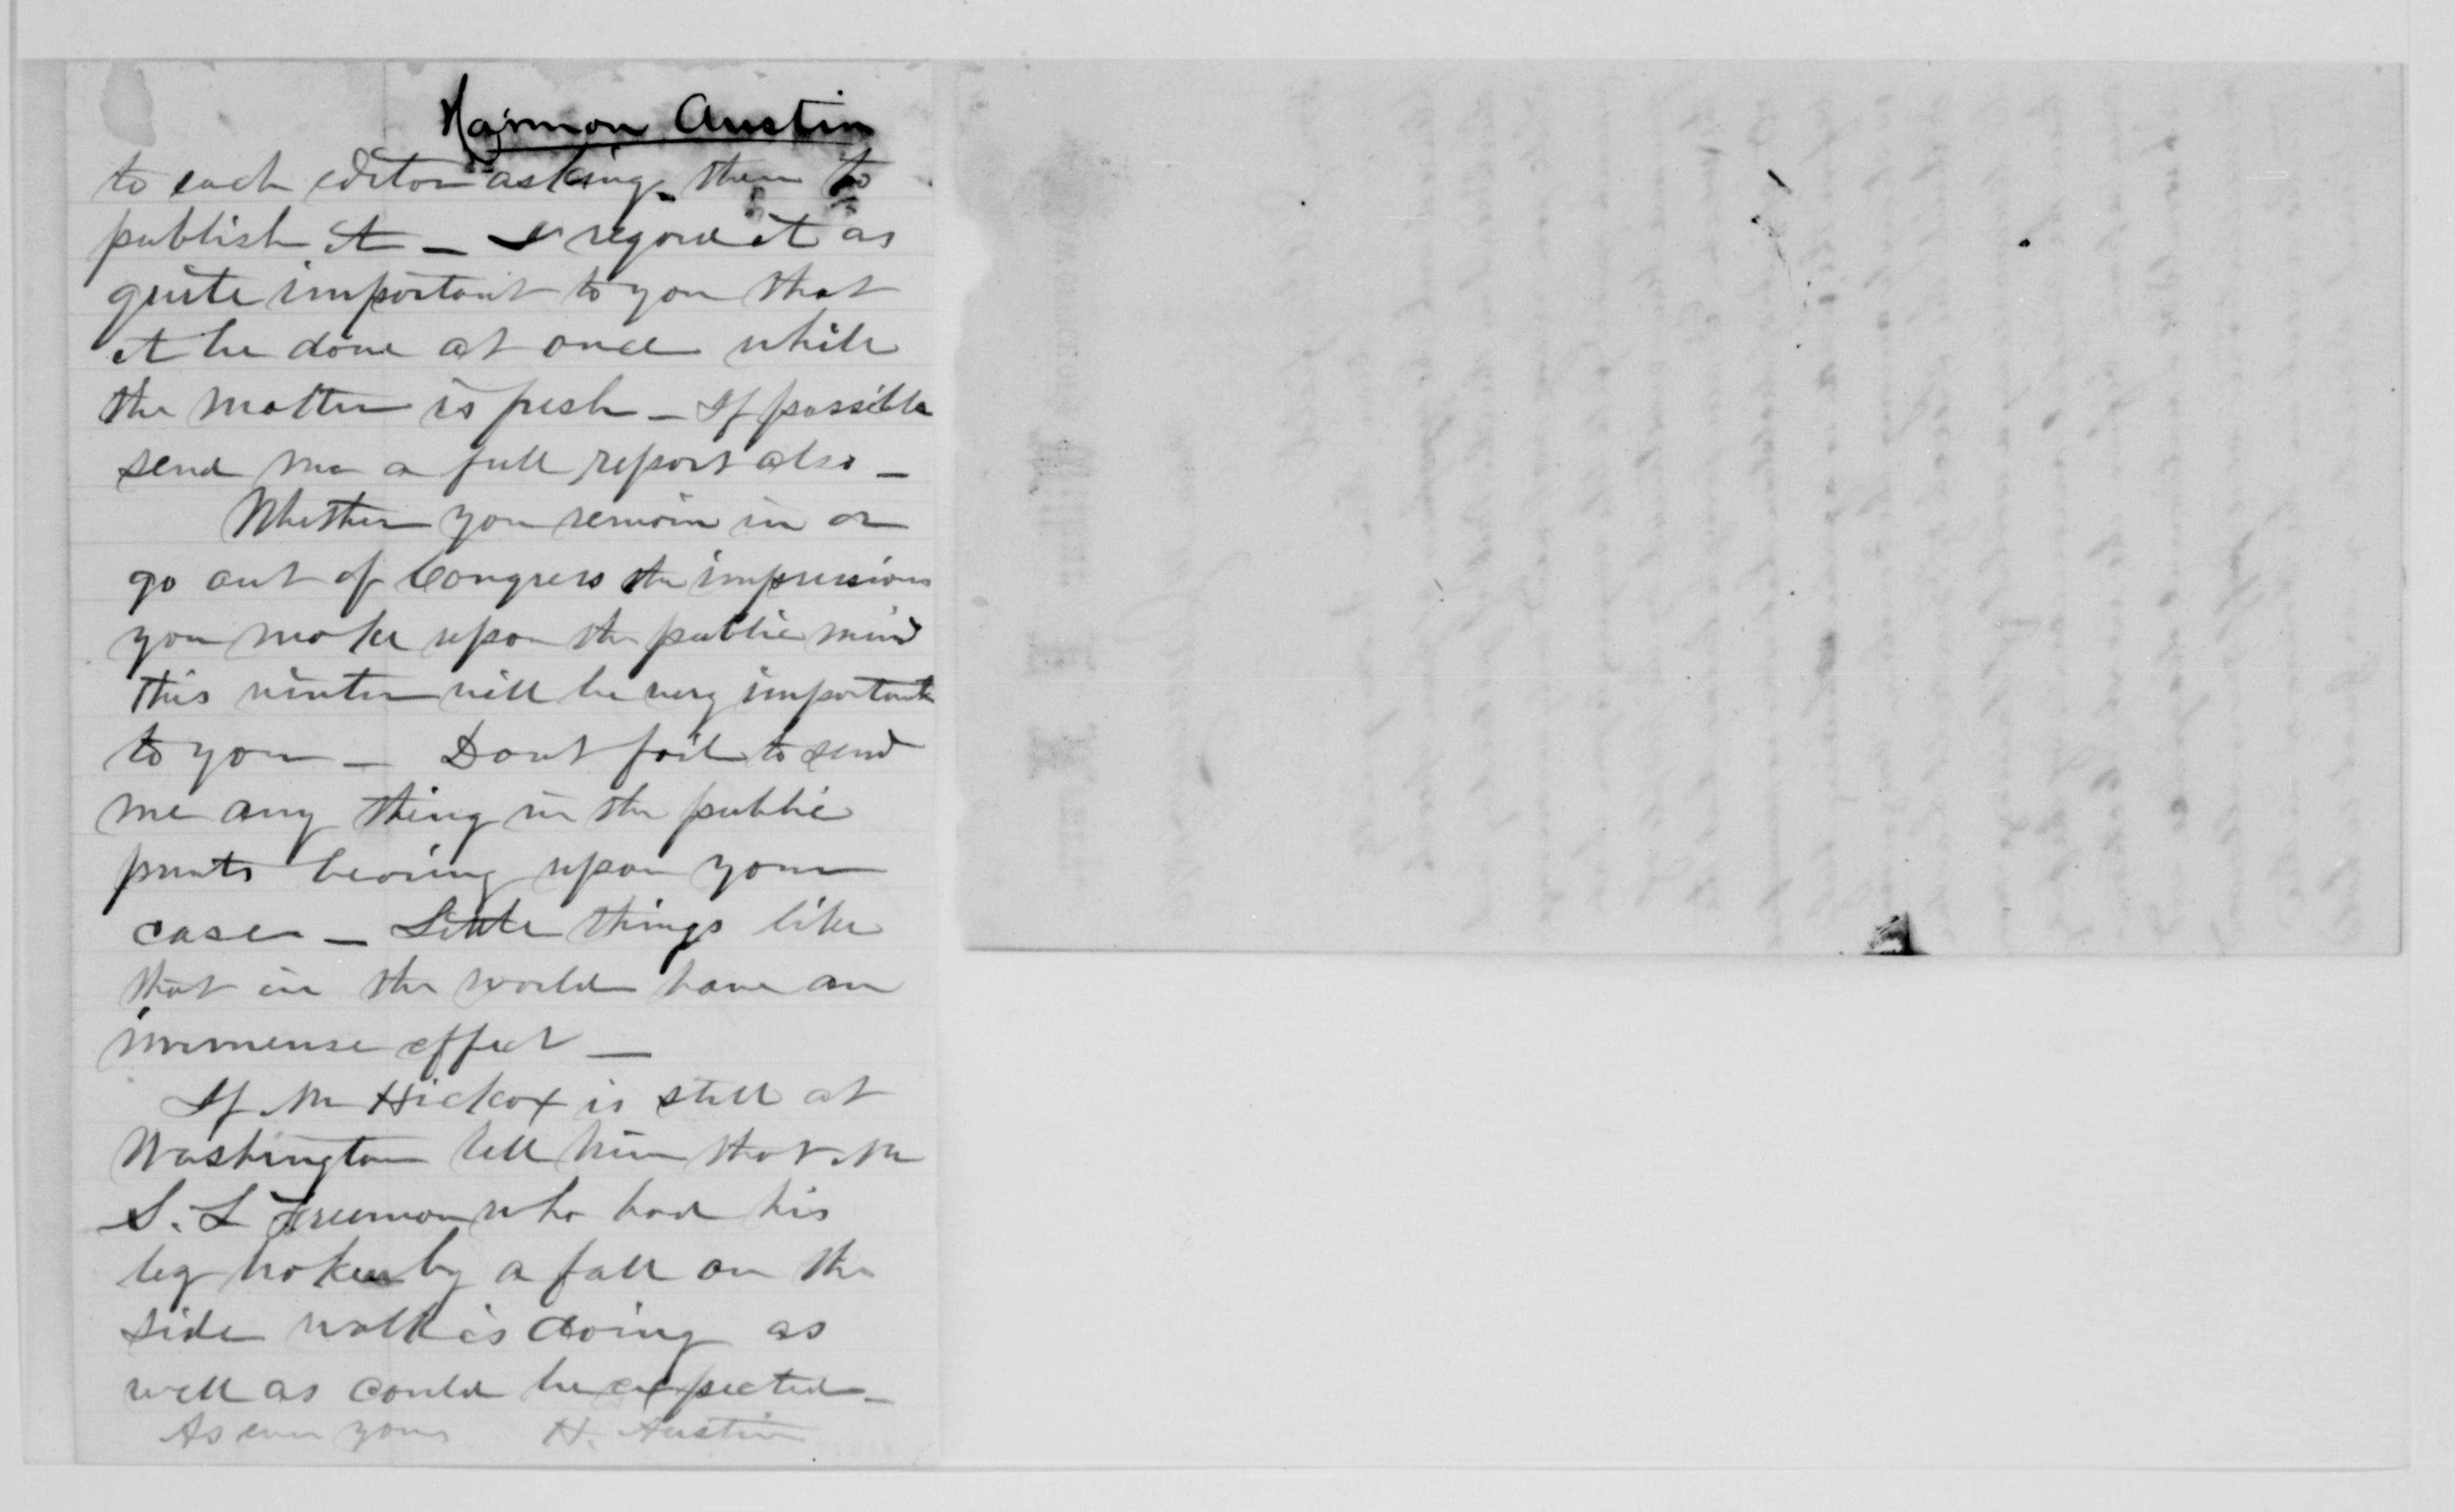 Harmon Austin
to each editor asking them to
publish it – I regard it as
quite important to you that
it be done at once while
the matter is fresh – If possible
send me a full report also –
Whether you remain in or
go out of Congress the impressions
you make upon the public mind
this winter will be very important
to you – Dont fail to send
me any thing in the public
prints bearing upon your
case – Little things like
that in the world have an
immense effect –
If Mr Hickox is still at
Washington tell him that Mr
S. L Freeman who had his
leg broken by a fall on the
side walk is doing as
well as could be expected –
As ever yours H. Austin